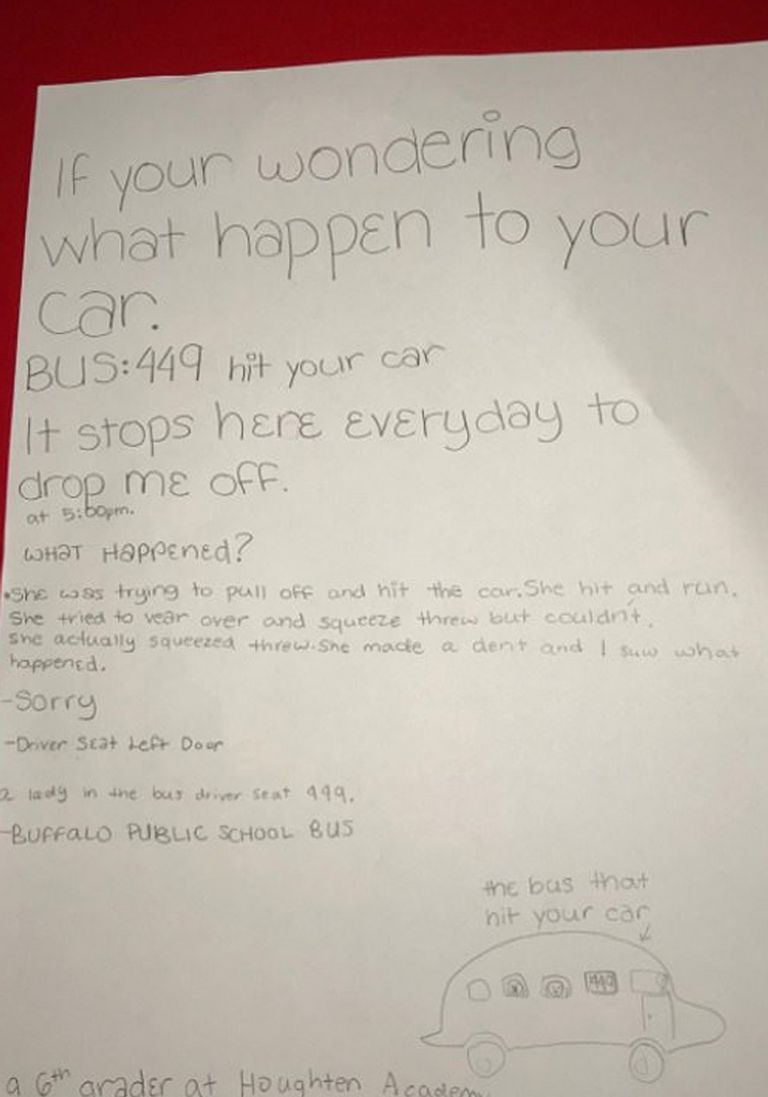 If your wondering
what happen to your
car.
BUS:449 hit your car
It stops here everyday to
drop me off.
at 5:00pm.
WHAT Happened?
•She was trying to pull off and hit the car. She hit and run.
She tried to vear over and squeeze threw but couldn't.
She actually squeezed threw. She made a dent and I saw what
happened.
-Sorry
-Driver Seat Left Door
a lady in the bus driver seat 449.
-BUFFALO PUBLIC SCHOOL BUS
the bus that
hit your car
449
a 6th grader at Houghten Academy